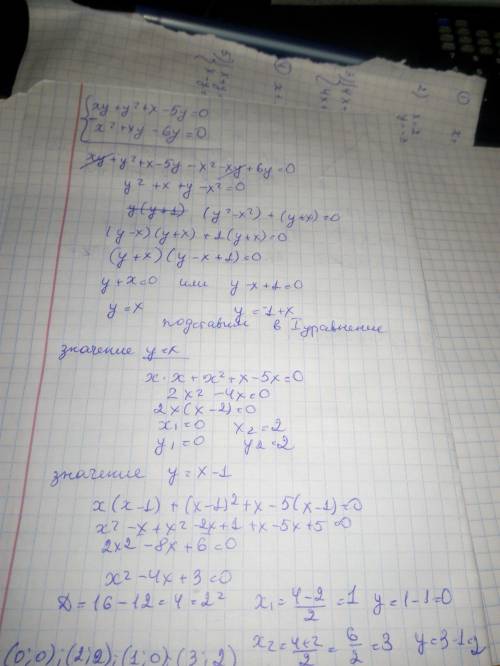 xy+y²+x-5y=0
x²+xy-6y=0
xy+y²+x-5y-x²-xy+6y=0
y²+x+y-x²=0
y(y+1) (y²-x²)+(y+x)=0
(y-x)(y+x)+1(y+x)=0
(y+x)(y-x+1)=0
y+x=0 или y-x+1=0
y=x y=-1+x
подставим в I уравнение
значение y=x
x·x+x²+x-5x=0
2x²-4x=0
2x(x-2)=0
x₁=0 x₂=2
y₁=0 y₂=2
значение y=x-1
x(x-1)+(x-1)²+x-5(x-1)=0
x²-x+x²-2x+1+x-5x+5=0
2x2-8x+6=0
x²-4x+3=0
D=16-12=4=2² x₁=4-2/2=1 y=1-1=0
x₂=4+2/2=6/2=3 y=3-1=2
(0;0);(2;2);(1;0)(3;2)